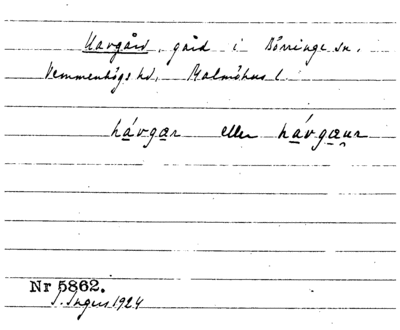 Havgård, gård i Börringe sn.
Vemmenhögs hd, Malmöhus l.
hávgar eller hávgæur
Nr 5862.
I. Ingers 1924